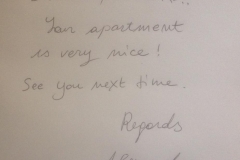 Your apartment
is very nice!
See you next time.
Regards